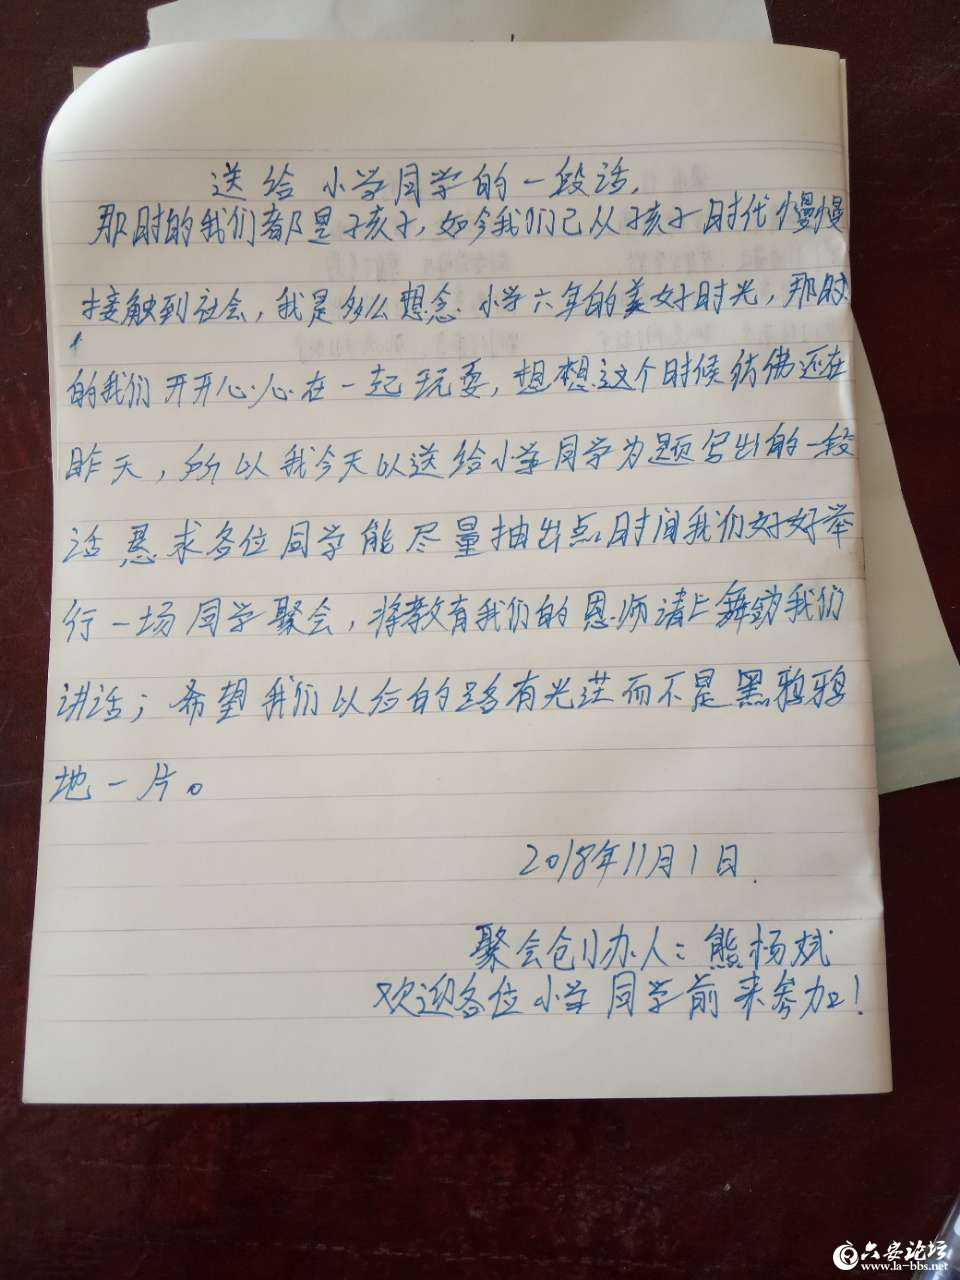 送给小学同学的一段话,
那时的我们都是孩子,如今我们已从孩子时代慢慢
接触到社会,我是多么想念小学六年的美好时光,那时
的我们开开心心在一起玩耍,想想这个时候仿佛还在
昨天,所以我今天以送给小学同学为题写出的一段
话恳求各位同学能尽量抽出点时间我们好好举
行一场同学聚会,将教育我们的恩师请上舞台为我们
讲话;希望我们以后的路有光芒而不是黑鸦鸦
地一片。
2018年11月1日.
聚会创办人:熊杨斌
欢迎各位小学同学前来参加!
六安论坛
www.la-bbs.net